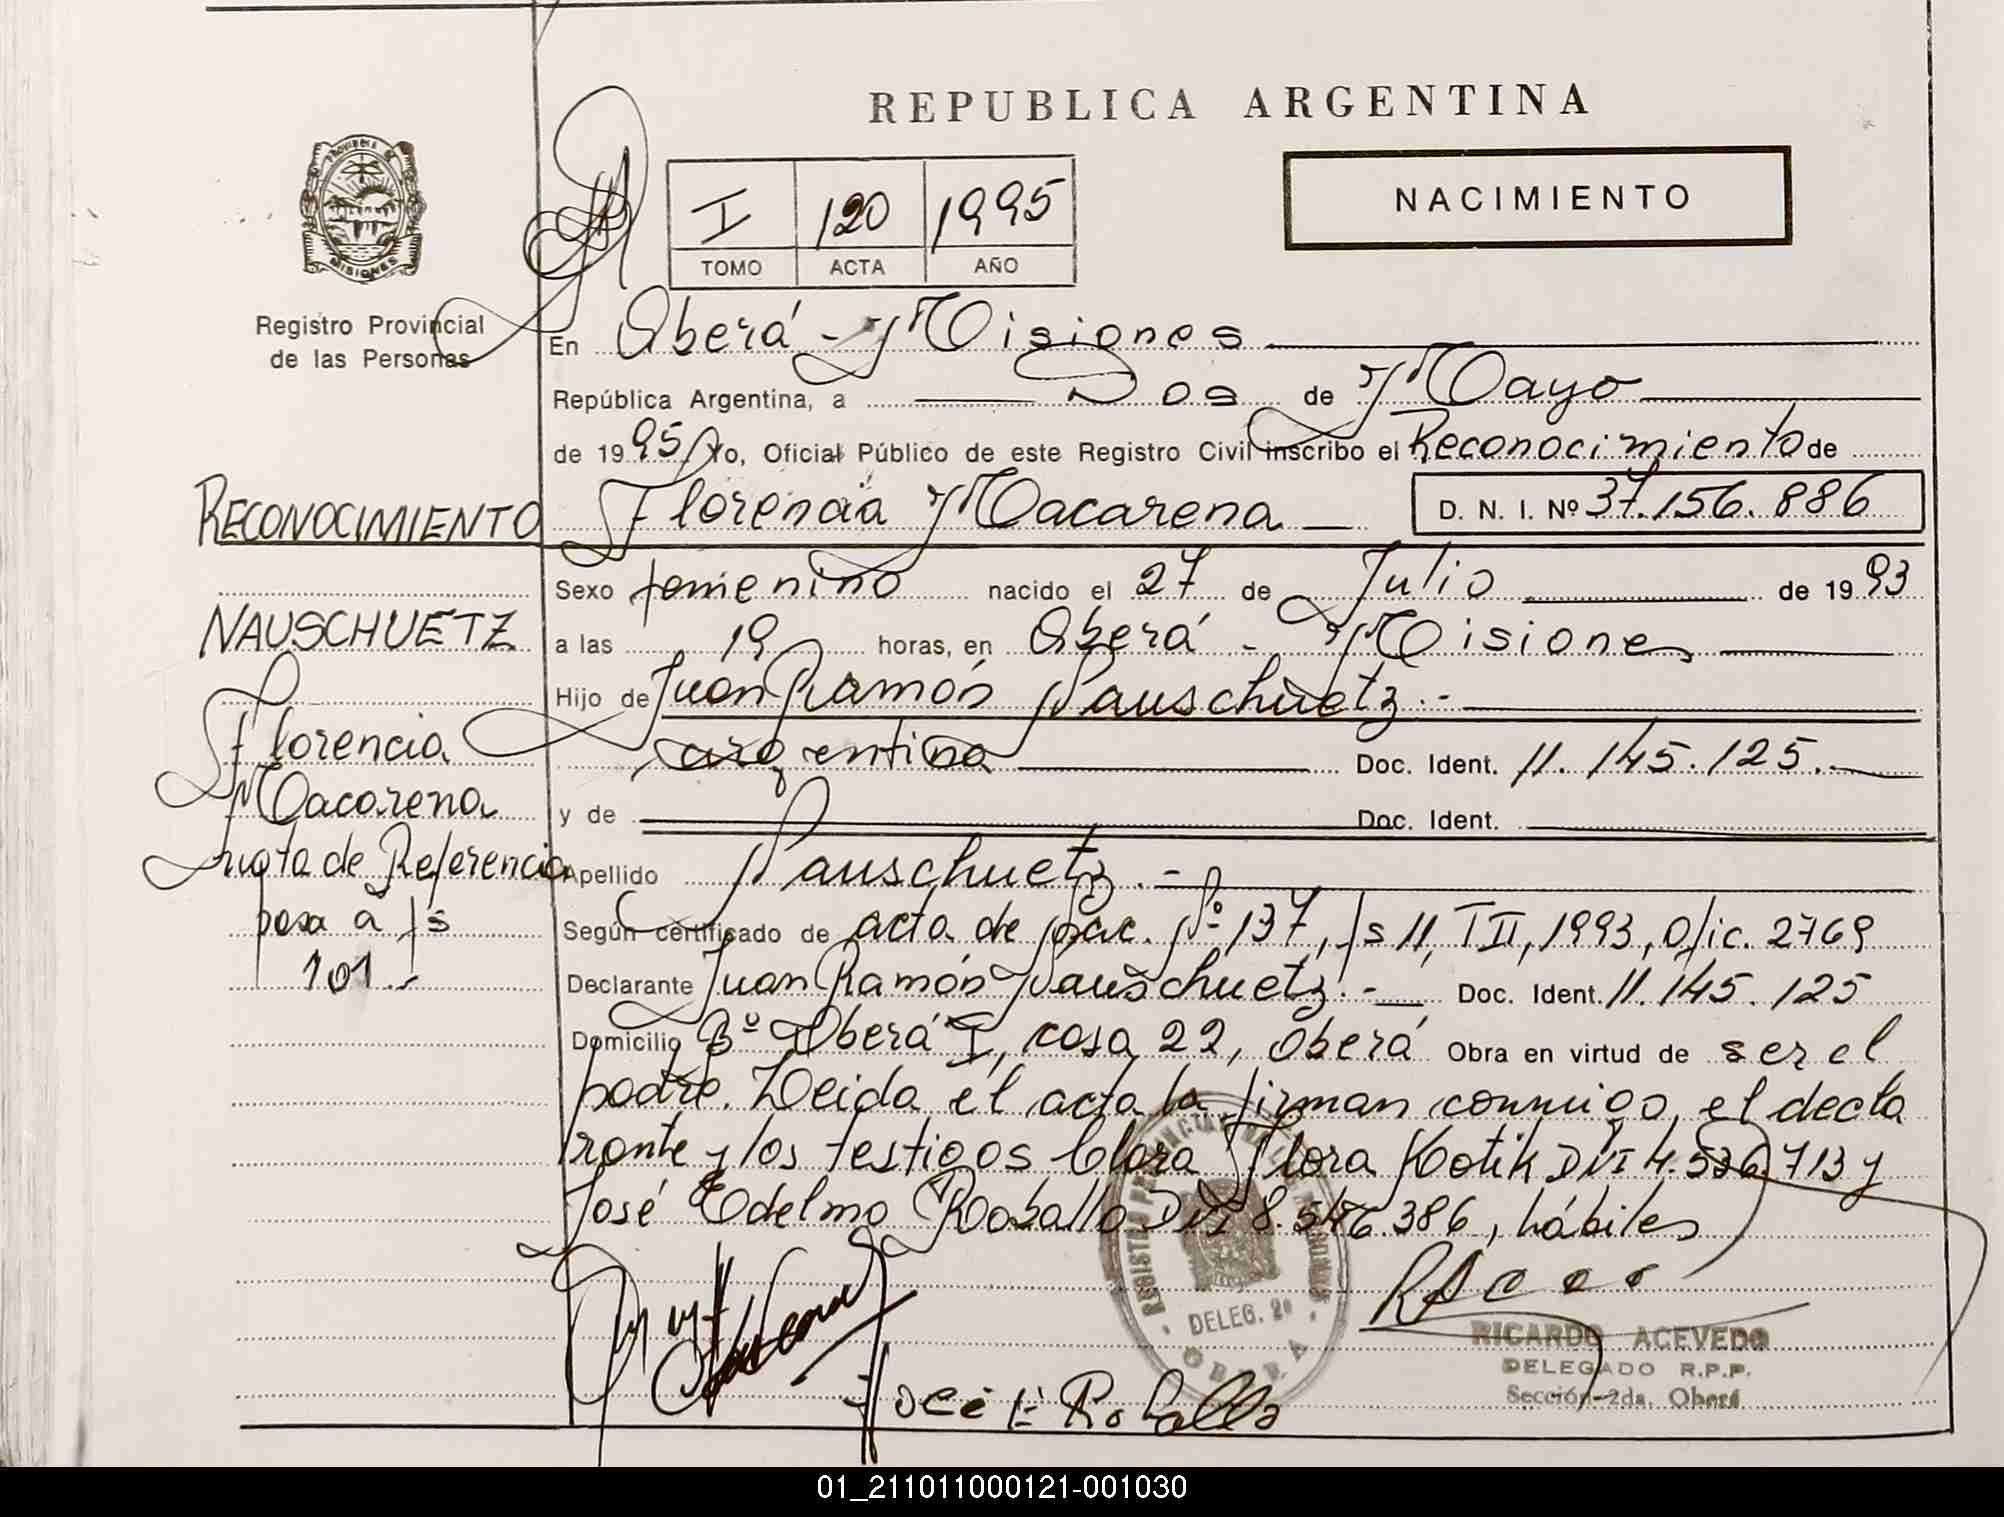 REPUBLICA ARGENTINA
PROVINCIA DE
MISIONES
Registro Provincial
de las Personas
I 120 1995
TOMO ACTA AÑO
NACIMIENTO
En Oberá - Misiones
República Argentina, a Dos de Mayo
de 1995 Yo, Oficial Público de este Registro Civil inscribo el Reconocimiento de
Florencia Macarena D. N. I. Nº 37.156.886
Sexo femenino nacido el 27 de Julio de 1993
a las 19 horas, en Oberá - Misiones
Hijo de Juan Ramón Nauschuetz.-
argentina Doc. Ident. 11.145.125.-
y de Doc. Ident.
Apellido Nauschuetz.-
Según certificado de acta de nac. Nº 137, fs 11, TII, 1993, Ofic. 2769
Declarante Juan Ramón Nauschuetz.- Doc. Ident. 11.145.125
Domicilio Bº Oberá I, casa 22, Oberá Obra en virtud de ser el
padre. Leida el acta la firman conmigo, el decla
rante y los testigos Clara Flora Kotik DNI 4.536.713 y
José Edelmo Roballo DNI 8.546.386, hábiles
RECONOCIMIENTO
NAUSCHUETZ
Florencia
Macarena
nota de Referencia
pasa a fs
101.-
DELEG. 2ª
OBERA
José E. Roballo
RICARDO ACEVEDO
DELEGADO R.P.P.
Sección 2da. Oberá
01_211011000121-001030